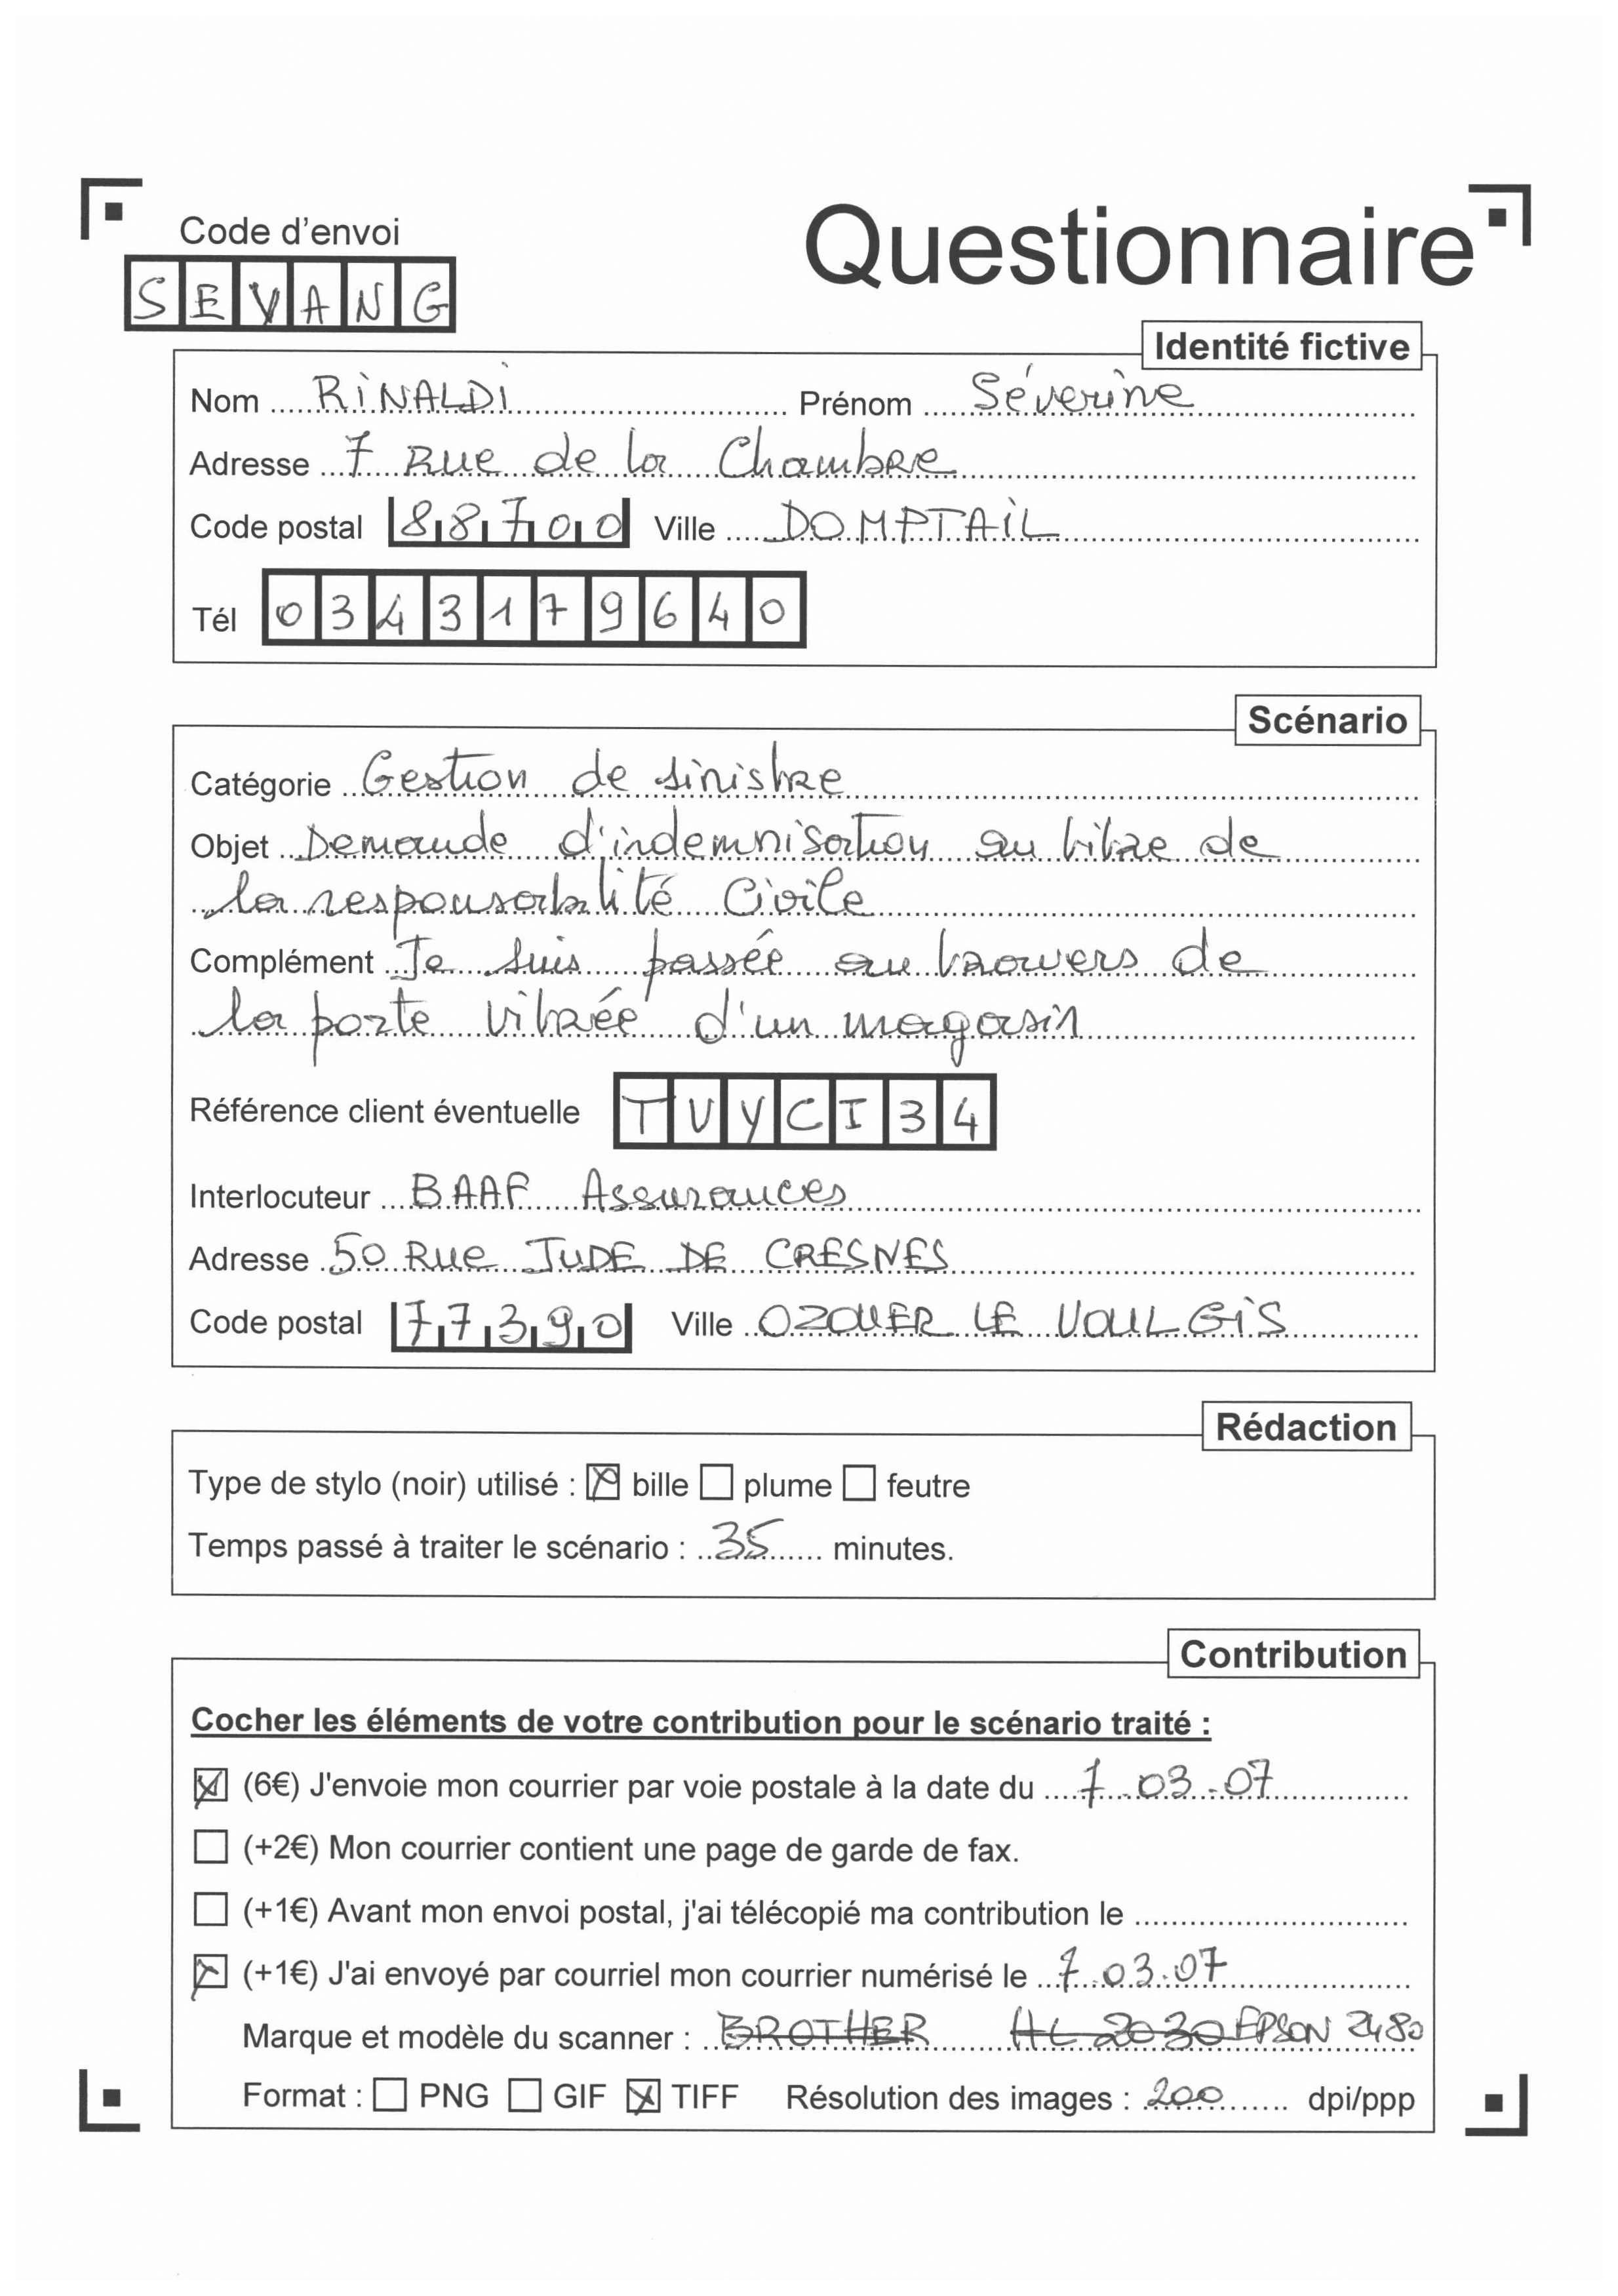 Questionnaire
Code d'envoi
SEVANG
Identité fictive
Nom RINALDI Prénom Séverine
Adresse 7 Rue de la Chambre
Code postal 88700 Ville DOMPTAIL
Tél 0343179640
Scénario
Catégorie Gestion de sinistre
Objet Demande d'indemnisation au titre de
la responsabilité Civile
Complément Je suis passée au travers de
la porte vitrée d'un magasin
Référence client éventuelle TVYCI34
Interlocuteur BAAF Assurances
Adresse 50 Rue JUDE DE CRESNES
Code postal 77390 Ville OZOUER LE VOULGIS
Rédaction
Type de stylo (noir) utilisé : bille plume feutre
Temps passé à traiter le scénario : 35 minutes.
Contribution
Cocher les éléments de votre contribution pour le scénario traité :
(6€) J'envoie mon courrier par voie postale à la date du 7.03.07
(+2€) Mon courrier contient une page de garde de fax.
(+1€) Avant mon envoi postal, j'ai télécopié ma contribution le
(+1€) J'ai envoyé par courriel mon courrier numérisé le 7.03.07
Marque et modèle du scanner : BROTHER HL 2030 EPSON 2480
Format : PNG GIF TIFF Résolution des images : 200 dpi/ppp